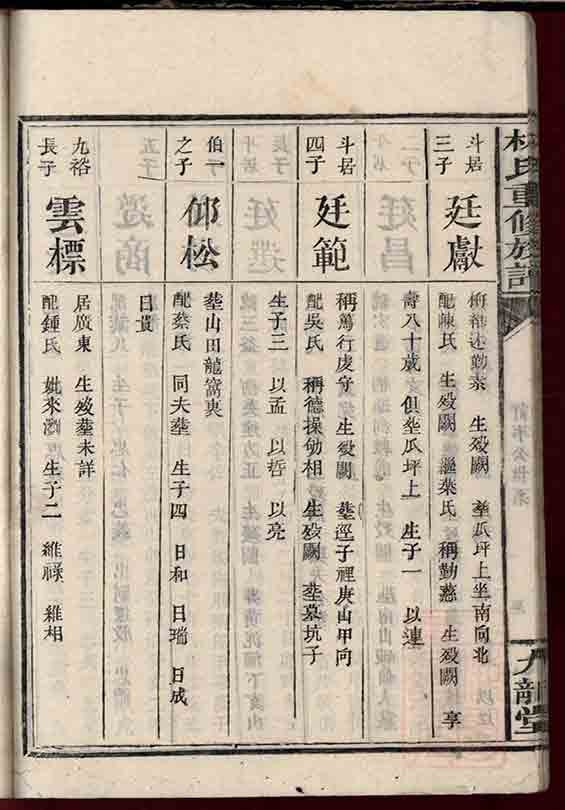 林氏重修族譜
九龍堂
斗居
三子
廷獻
稱 述勤 生歿闕 塟瓜坪上坐南向北
配陳氏 生歿闕 繼葉氏 稱勤慈 生歿闕 享
壽八十歲 俱塟瓜坪上 生子一 以連
斗居
四子
廷範
稱篤行 守 生歿闕 塟逕子裡庚山甲向
配吳氏 稱德操劬相 生歿闕 塟墓坑子
生子三 以孟 以哲 以亮
伯一
之子
邵松
塟山田龍窩裏
配蔡氏 同夫塟 生子四 日和 日瑞 日成
日貴
九裕
長子
雲標
居廣東 生歿塟未詳
配鍾氏 妣來 生子二 維祿 維相